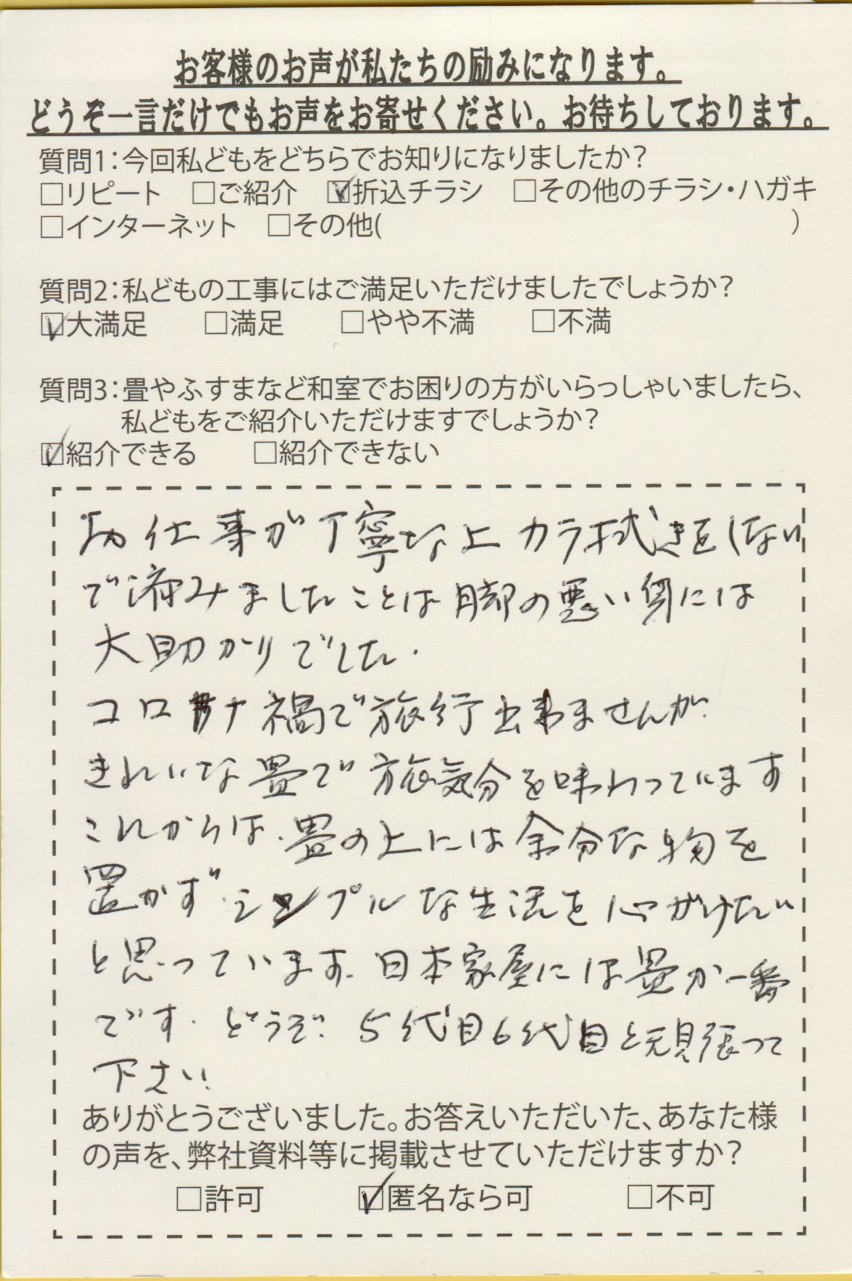 お客様のお声が私たちの励みになります。
どうぞ一言だけでもお声をお寄せください。お待ちしております。
質問1:今回私どもをどちらでお知りになりましたか?
□リピート □ご紹介 ☑折込チラシ □その他のチラシ・ハガキ
□インターネット □その他( )
質問2:私どもの工事にはご満足いただけましたでしょうか?
☑大満足 □満足 □やや不満 □不満
質問3:畳やふすまなど和室でお困りの方がいらっしゃいましたら、
私どもをご紹介いただけますでしょうか?
☑紹介できる □紹介できない
お仕事が丁寧な上カラ拭きをしない
で済みましたことは脚の悪い身には
大助かりでした.
コロナ禍で旅行出来ませんが
きれいな畳で旅気分を味わっています
これからは、畳の上には余分な物を
置かず、シンプルな生活を心がけたい
と思っています.日本家屋には畳が一番
です.どうぞ.5代目6代目と頑張って
下さい
ありがとうございました。お答えいただいた、あなた様
の声を、弊社資料等に掲載させていただけますか?
□許可 ☑匿名なら可 □不可